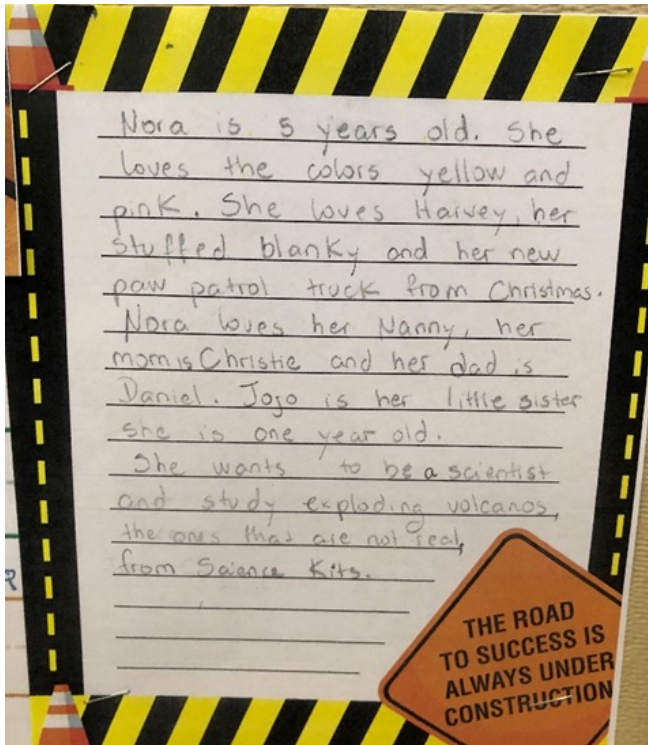 Nora is 5 years old. She
loves the colors yellow and
pink. She loves Harvey, her
stuffed blanky and her new
paw patrol truck from Christmas.
Nora loves her Nanny, her
mom is Christie and her dad is
Daniel. Jojo is her little sister
she is one year old.
She wants to be a scientist
and study exploding volcanos,
the ones that are not real,
from Science Kits.
THE ROAD
TO SUCCESS IS
ALWAYS UNDER
CONSTRUCTION